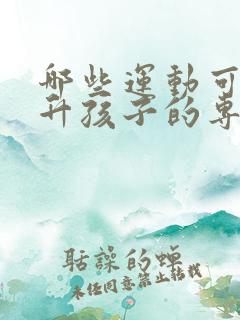 哪些運動可
升孩子的專
聒譟的蟬
未经同意禁止转载